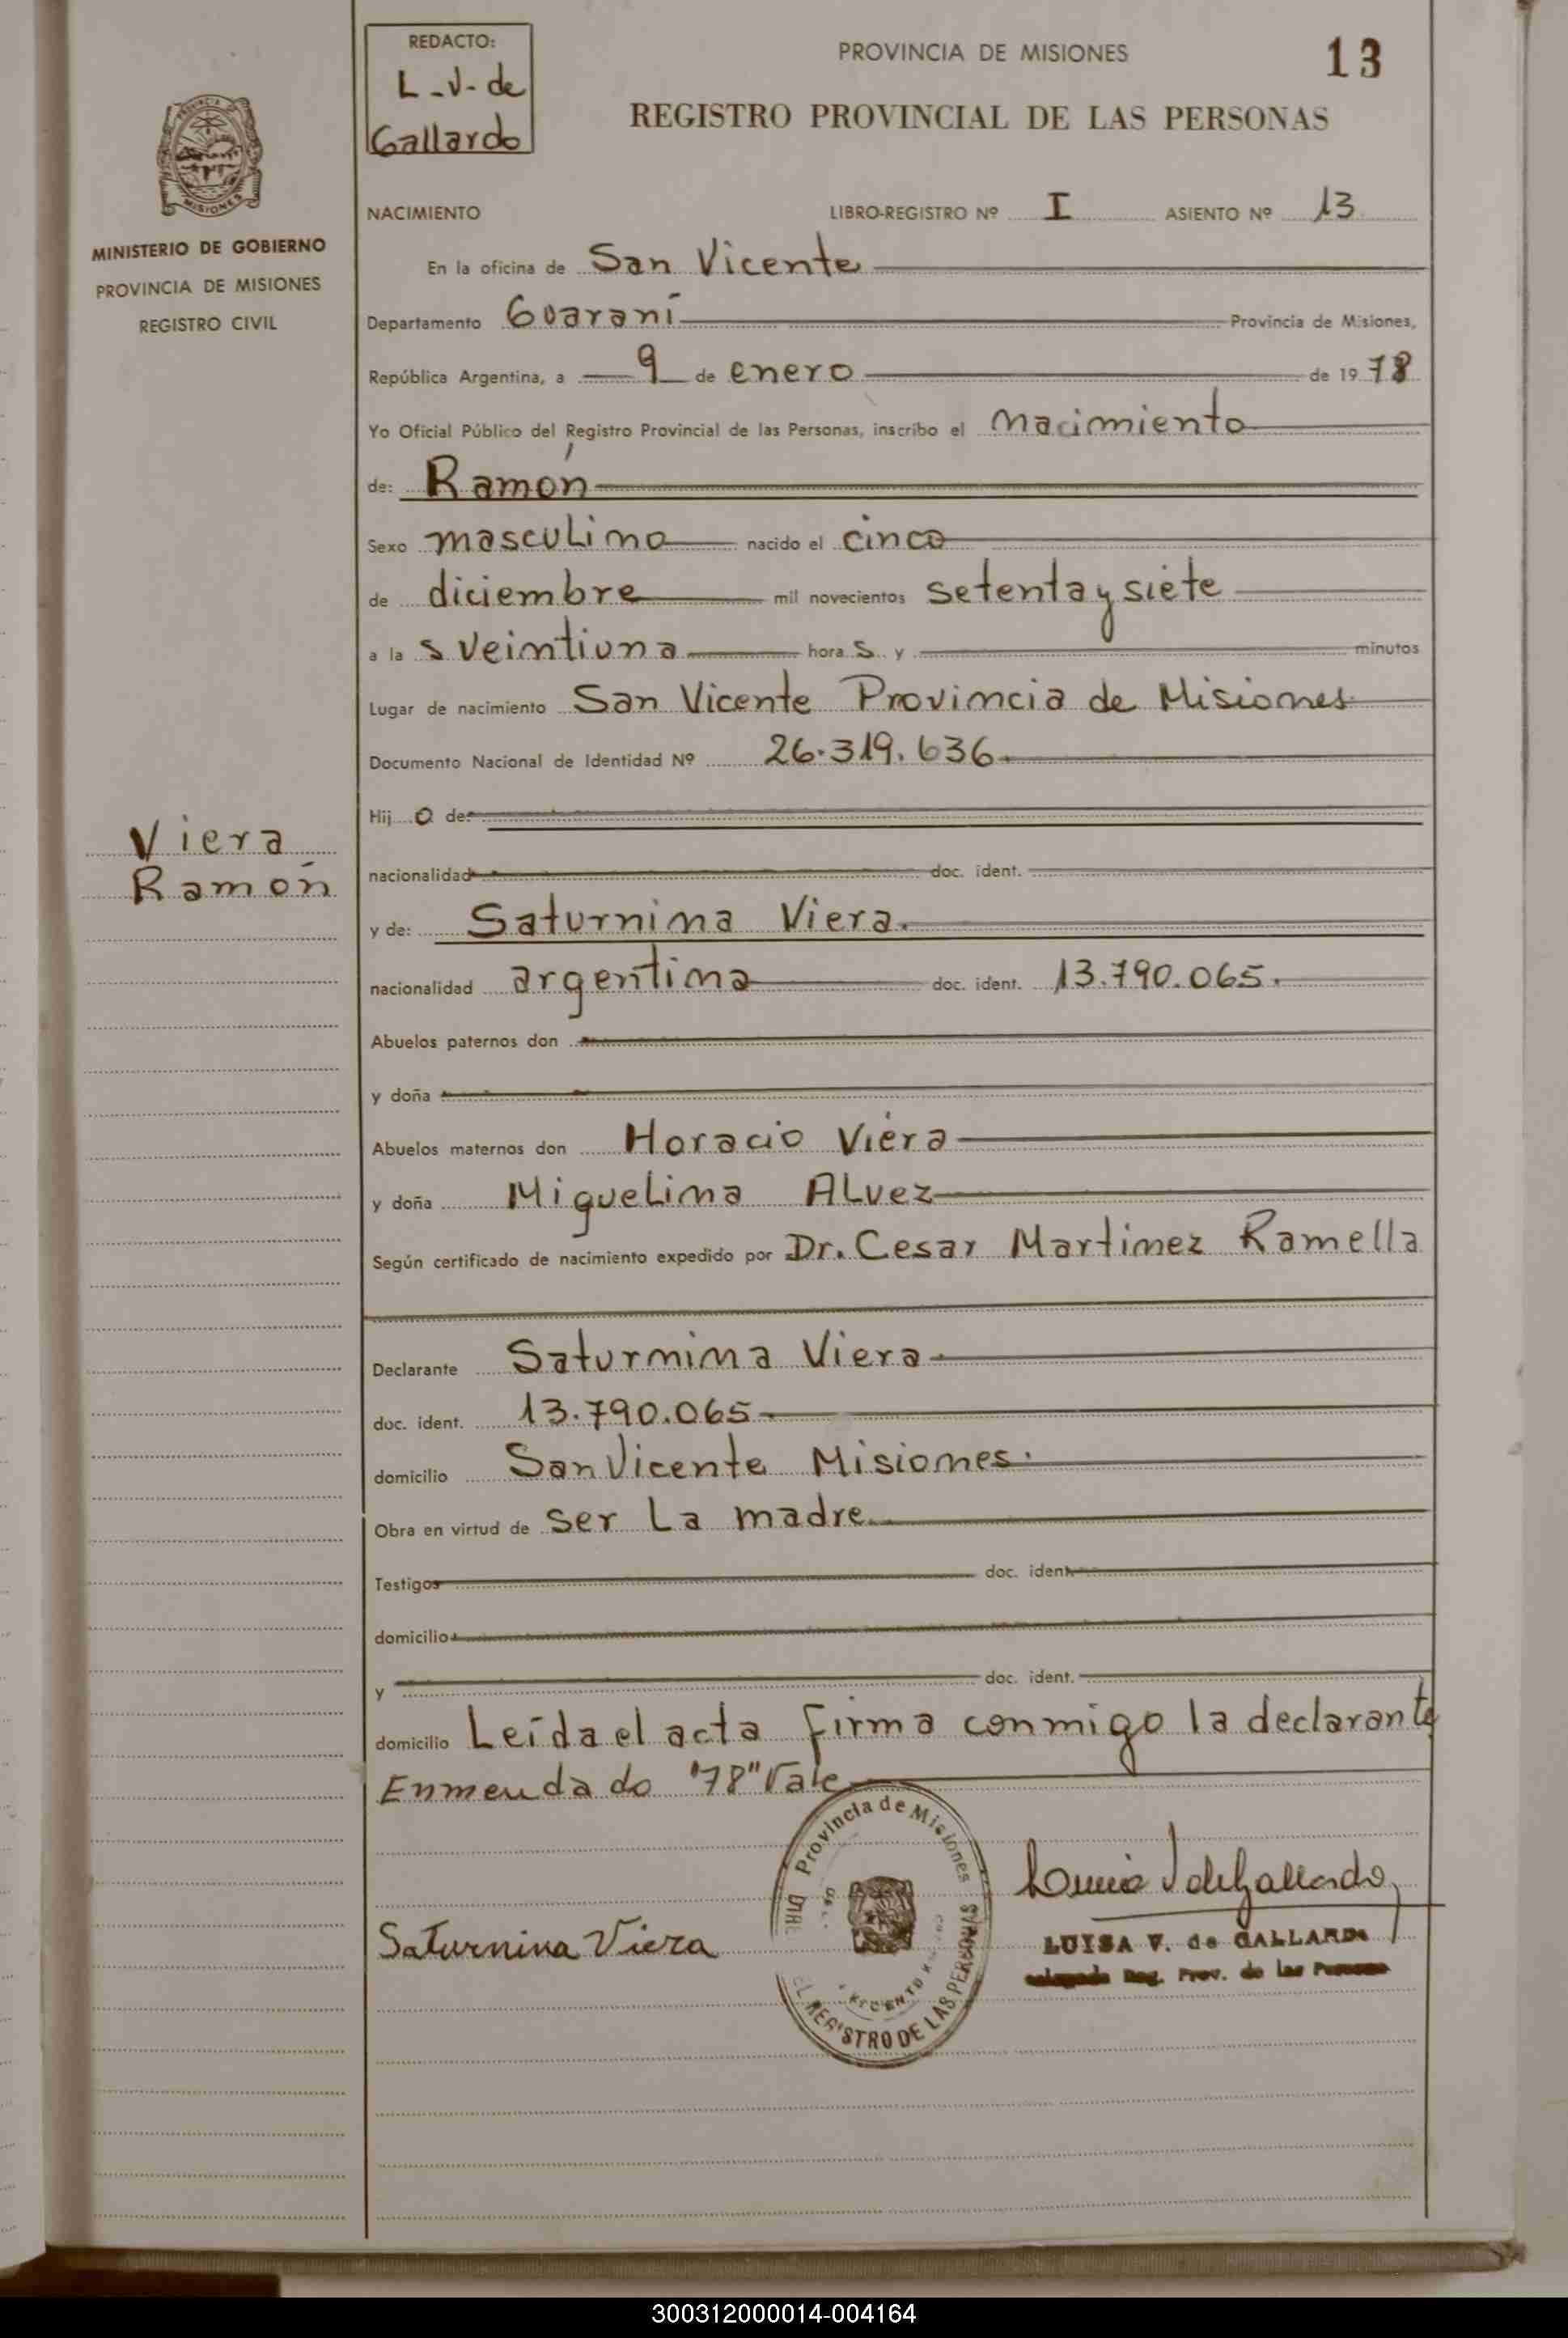 REDACTO:
L-V-de
Gallardo
PROVINCIA DE MISIONES
13
REGISTRO PROVINCIAL DE LAS PERSONAS
PROVINCIA DE
MISIONES
MINISTERIO DE GOBIERNO
PROVINCIA DE MISIONES
REGISTRO CIVIL
NACIMIENTO LIBRO-REGISTRO Nº I ASIENTO Nº 13
En la oficina de San Vicente
Departamento Guaraní Provincia de Misiones,
República Argentina, a 9 de enero de 1978
Yo Oficial Público del Registro Provincial de las Personas, inscribo el nacimiento
de: Ramón
Sexo masculino nacido el cinco
de diciembre mil novecientos setenta y siete
a la s veintiuna hora s y minutos
Lugar de nacimiento San Vicente Provincia de Misiones
Documento Nacional de Identidad Nº 26.319.636.
Hij o de:
Viera
Ramón
nacionalidad doc. ident.
y de: Saturnina Viera.
nacionalidad argentina doc. ident. 13.790.065.
Abuelos paternos don
y doña
Abuelos maternos don Horacio Viera
y doña Miguelina Alvez
Según certificado de nacimiento expedido por Dr. Cesar Martinez Ramella
Declarante Saturnina Viera
doc. ident. 13.790.065
domicilio San Vicente Misiones.
Obra en virtud de ser La madre
Testigos doc. ident.
domicilio
y doc. ident.
domicilio Leída el acta firma conmigo la declarante
Enmendado "78" Vale
Provincia de Misiones
EL REGISTRO DE LAS PERSONAS
Saturnina Viera
LUISA V. de GALLARDO
Reg. Prov. de las Personas
300312000014-004164